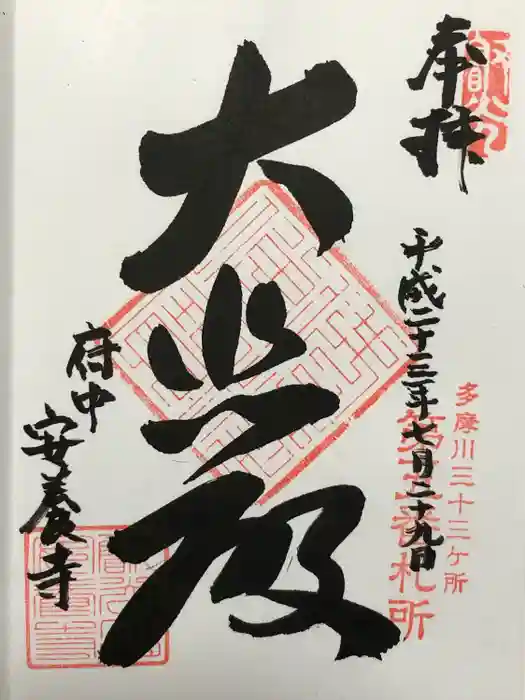 奉拝
平成二十三年七月二十九日
多摩川三十三ヶ所
番札所
大悲殿
府中
安養寺